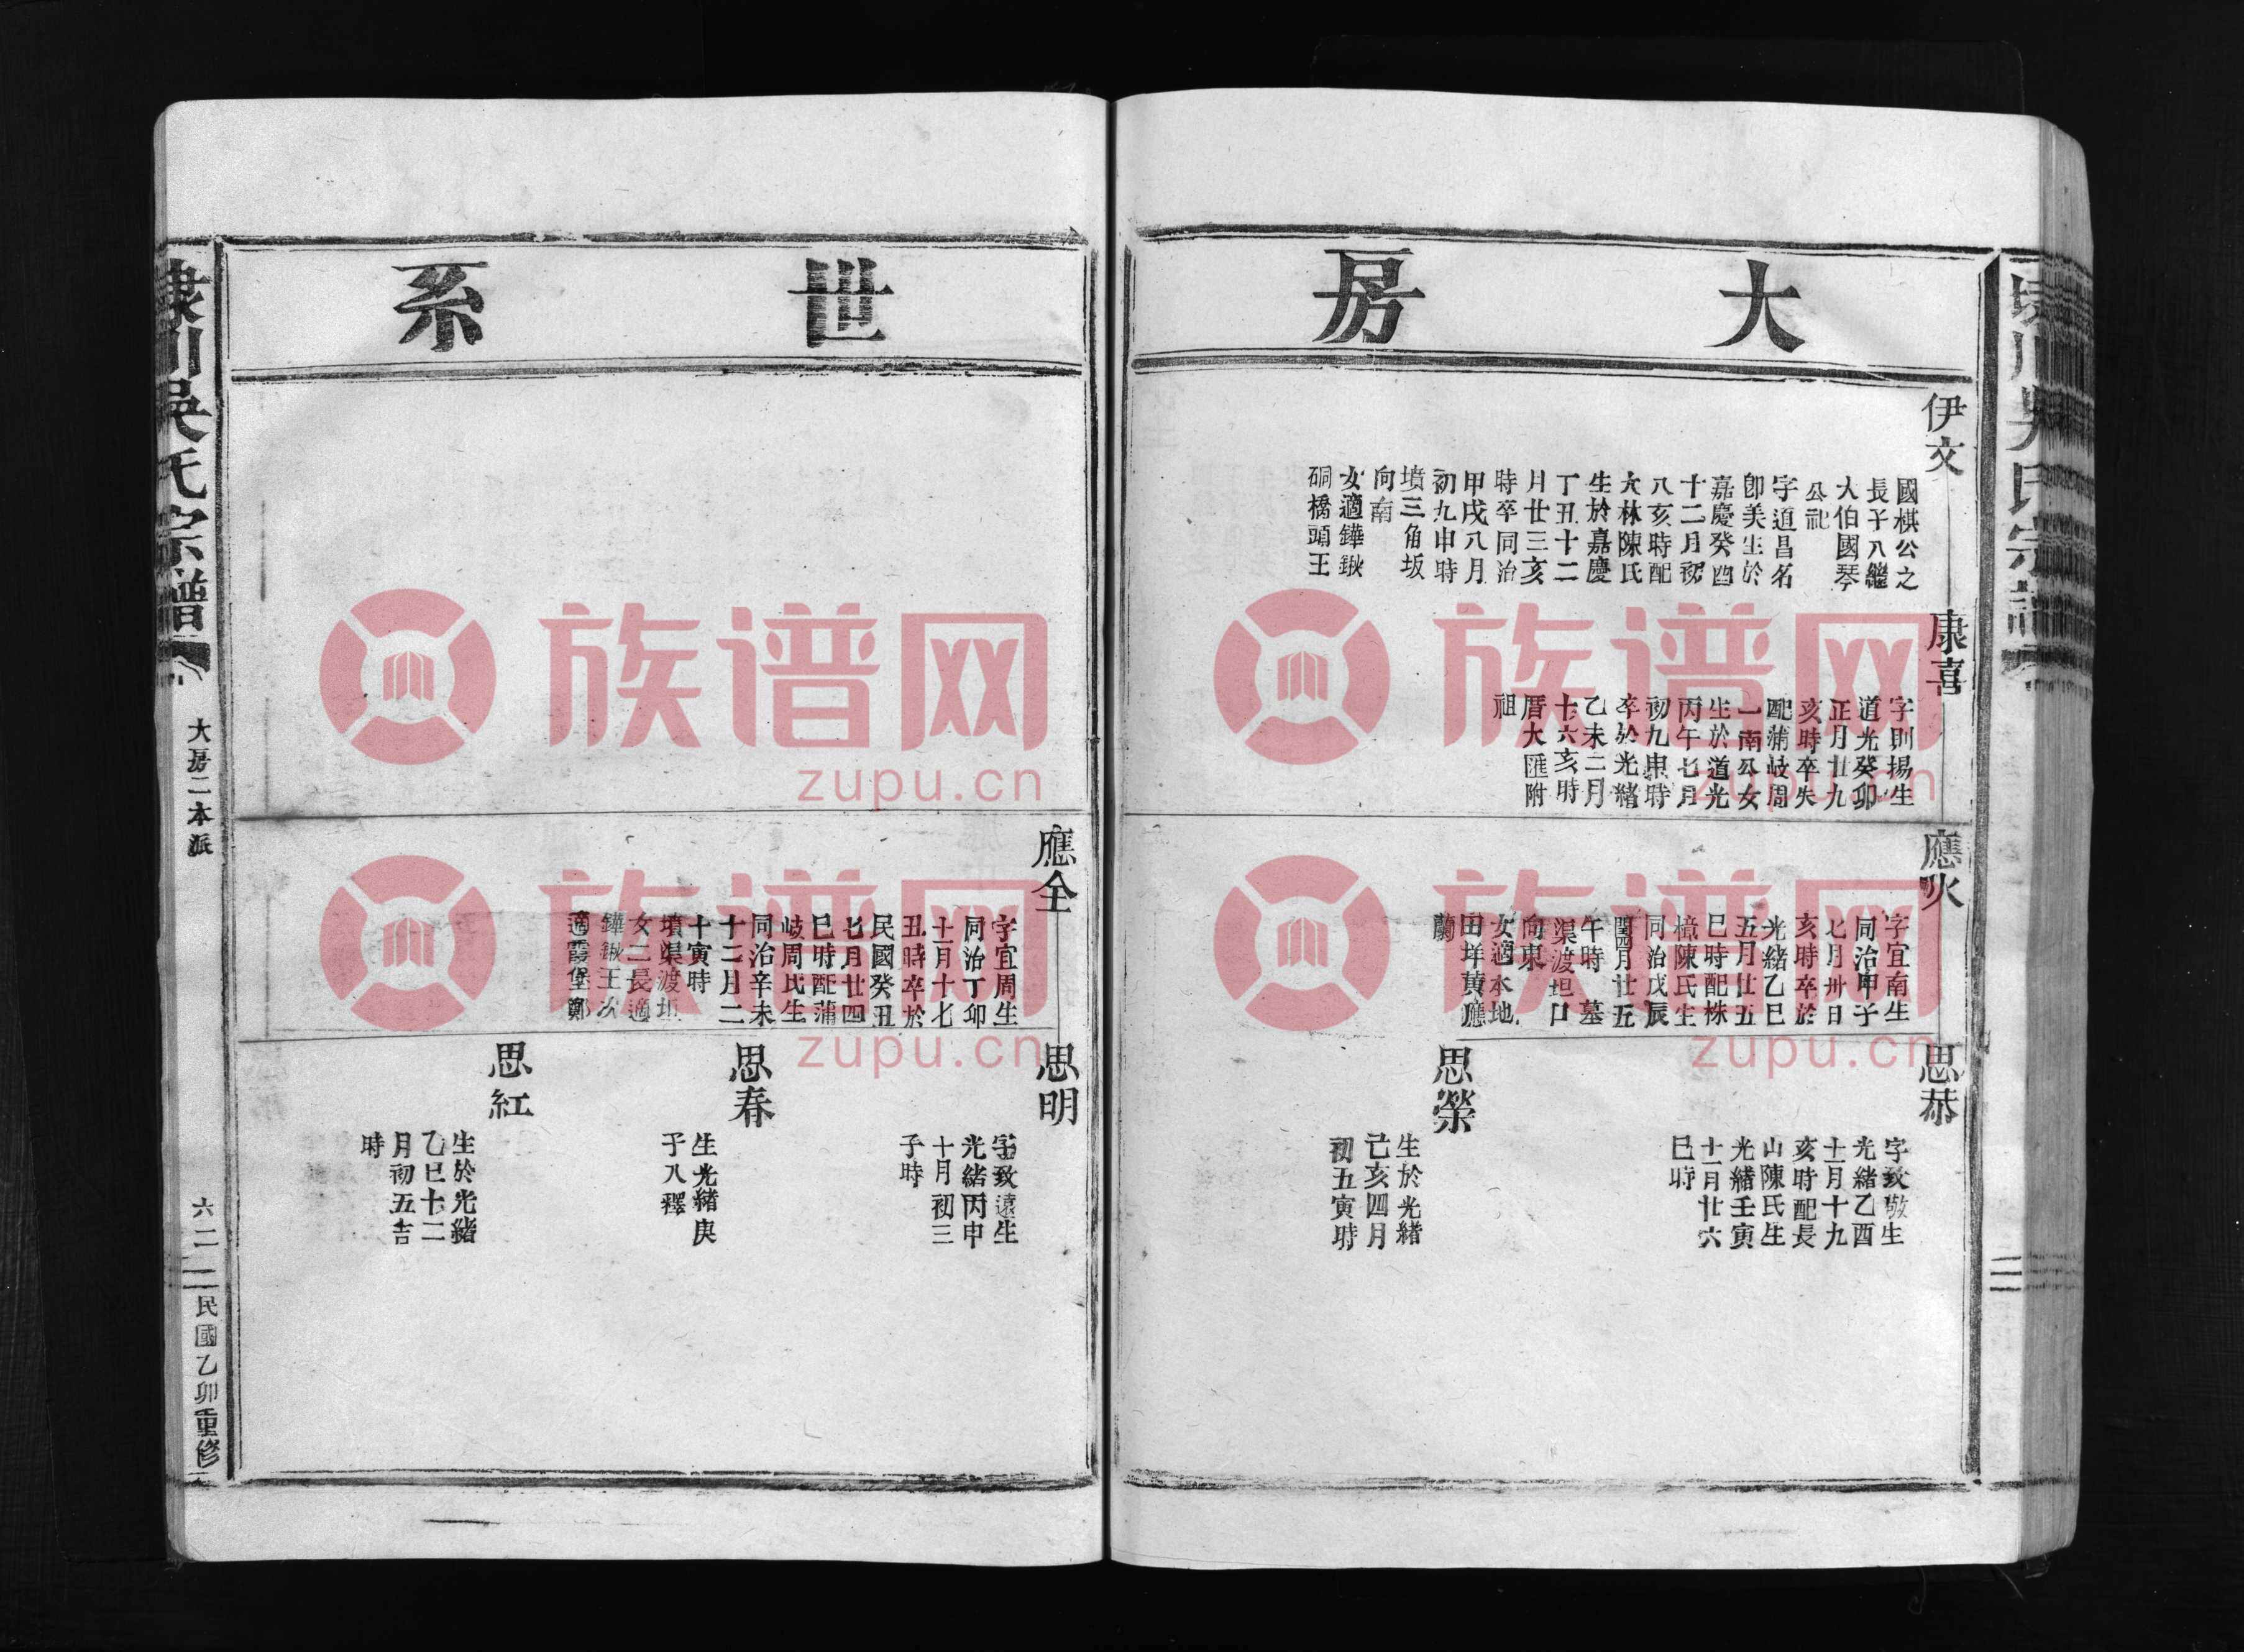 大房
伊文
國棋公之
長子入繼
大伯國琴
公祀
字道昌名
卽美生於
嘉慶癸酉
十二月初
八亥時配
大林陳氏
生於嘉慶
丁丑十二
月廿三亥
時卒同治
甲戌八月
初九申時
墳三角坂
向南
女適鏵鍬
硐橋頭王
康喜
字則揚生
道光癸卯
正月廿九
亥時卒失
配蒲岐周
一南公女
生於道光
丙午七月
初九申時
卒於光緒
乙未二月
十六亥時
厝大匯附
祖
應火
字宜南生
同治甲子
七月卅日
亥時卒於
光緒乙巳
五月廿五
巳時配株
樟陳氏生
同治戊辰
閏四月廿五
午時 墓
渠渡坦口
向東
女適本地
田垟黃應
蘭
思恭
字致敬生
光緒乙酉
十一月十九
亥時配長
山陳氏生
光緒壬寅
十一月廿六
巳時
思榮
生於光緒
己亥四月
初五寅時
世系
應全
字宜周生
同治丁卯
十一月十七
丑時卒於
民國癸丑
七月廿四
巳時配蒲
岐周氏生
同治辛未
十二月二
十寅時
墳渠渡坦
女二長適
鏵鍬王次
適霞堡鄭
思明
字致遠生
光緒丙申
十月初三
子時
思春
生光緒庚
子入釋
思紅
生於光緒
乙巳十二
月初五吉
時
川吳氏宗譜
大房二本派
六二
民國乙卯重修
族谱网
zupu.cn
族谱网
zupu.cn
族谱网
zupu.cn
族谱网
zupu.cn